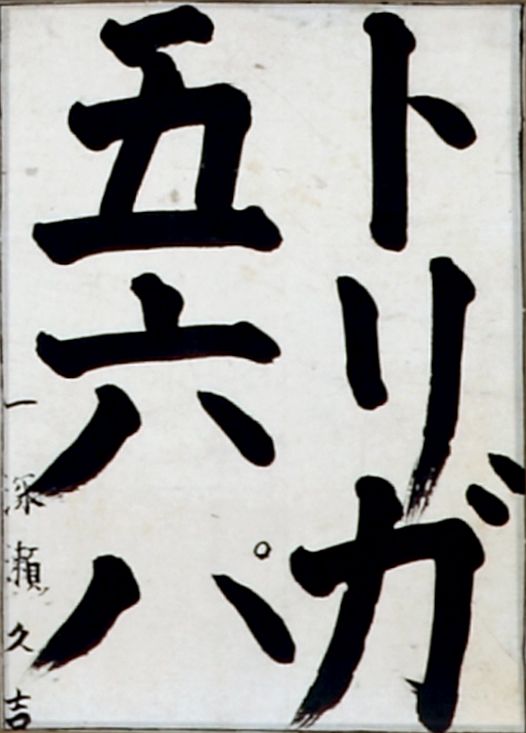 トリガ
五六パ
一 深瀬久吉